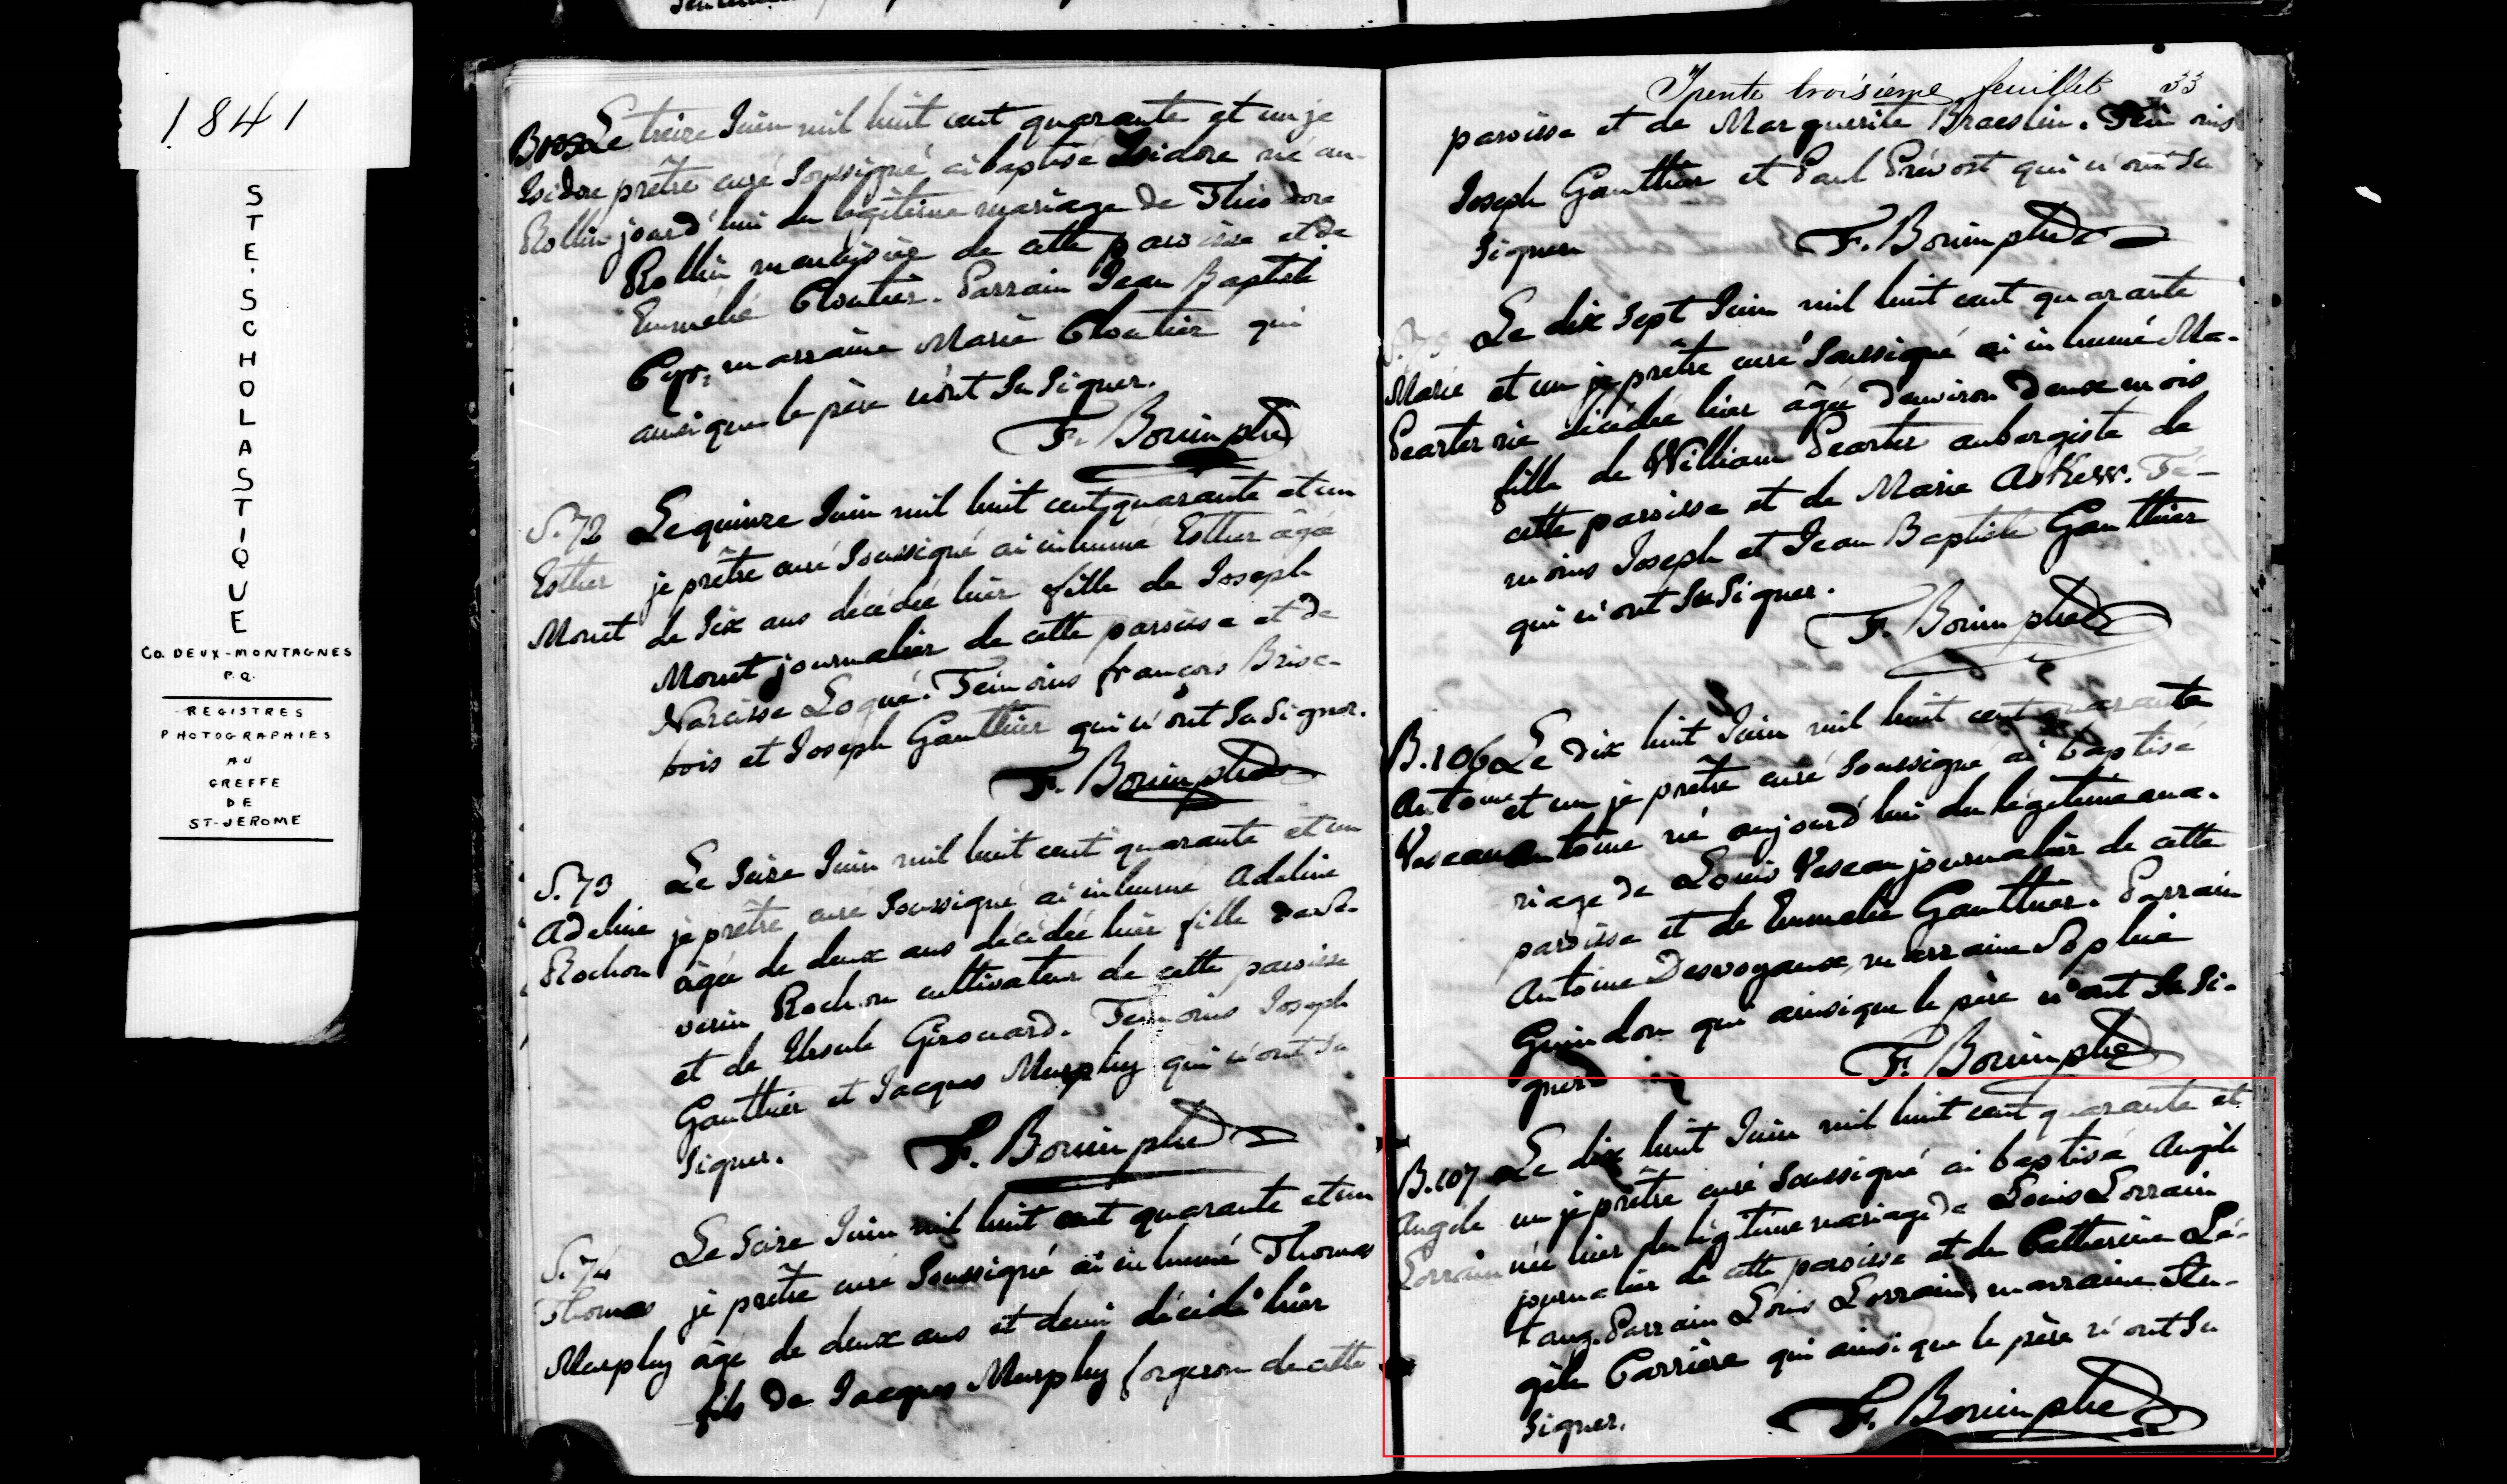 1841
STE. SCHOLASTIQUE
CO. DEUX-MONTAGNES
P.Q.
REGISTRES
PHOTOGRAPHIES
AU
GREFFE
DE
ST-JEROME
B105 Le treize Juin mil huit cent quarante et un je
Isidore prêtre curé soussigné ai baptisé Isidore né au-
Rollin jourd'hui du légitime mariage de Théodore
Rollin menuisier de cette paroisse et de
Emmélie Cloutier. Parrain Jean Baptiste
Cyr, marraine Marie Cloutier qui
ainsi que le père n'ont su signer.
F. Bonin ptre
S.72 Le quinze Juin mil huit cent quarante et un
Esther je prêtre curé soussigné ai inhumé Esther âgée
Monet de six ans décédée hier fille de Joseph
Monet journalier de cette paroisse et de
Narcisse Loqué. Temoins françois Brise-
bois et Joseph Gauthier qui n'ont su signer.
F. Bonin ptre
S.73 Le seize Juin mil huit cent quarante et un
Adeline je prêtre curé soussigné ai inhumé Adeline
Rochon âgée de deux ans décédée hier fille de Sé-
verin Rochon cultivateur de cette paroisse
et de Ursule Girouard. Temoins Joseph
Gauthier et Jacques Murphy qui n'ont su
signer.
F. Bonin ptre
S.74 Le seize Juin mil huit cent quarante et un
Thomas je prêtre curé soussigné ai inhumé Thomas
Murphy âgé de deux ans et demi décédé hier
fils de Jacques Murphy forgeron de cette
Trente troisième feuillet 33
paroisse et de Marguerite Braeslin. Témoins
Joseph Gauthier et Paul Prévost qui n'ont su
signer
F. Bonin ptre
Le dix sept Juin mil huit cent quarante
Marie et un je prêtre curé soussigné ai inhumé Ma-
Pearter rie décédée hier âgée d'environ deux mois
fille de William Pearter aubergiste de
cette paroisse et de Marie Té-
moins Joseph et Jean Baptiste Gauthier
qui n'ont su signer.
F. Bonin ptre
B.106 Le dix huit Juin mil huit cent quarante
Antoine et un je prêtre curé soussigné ai baptisé
Veseau Antoine né aujourd'hui du légitime ma-
riage de Louis Veseau journalier de cette
paroisse et de Emmelie Gauthier. Parrain
Antoine Desvoyaux, marraine Sophie
Guindon qui ainsi que le père n'ont su si-
gner
F. Bonin ptre
B.107 Le dix huit Juin mil huit cent quarante et
Angele un je prêtre curé soussigné ai baptisé Angèle
Lorrain née hier du légitime mariage de Louis Lorrain
journalier de cette paroisse et de Catherine Lé-
tang. Parrain Louis Lorrain, marraine An-
gèle Carrière qui ainsi que le père n'ont su
signer.
F. Bonin ptre